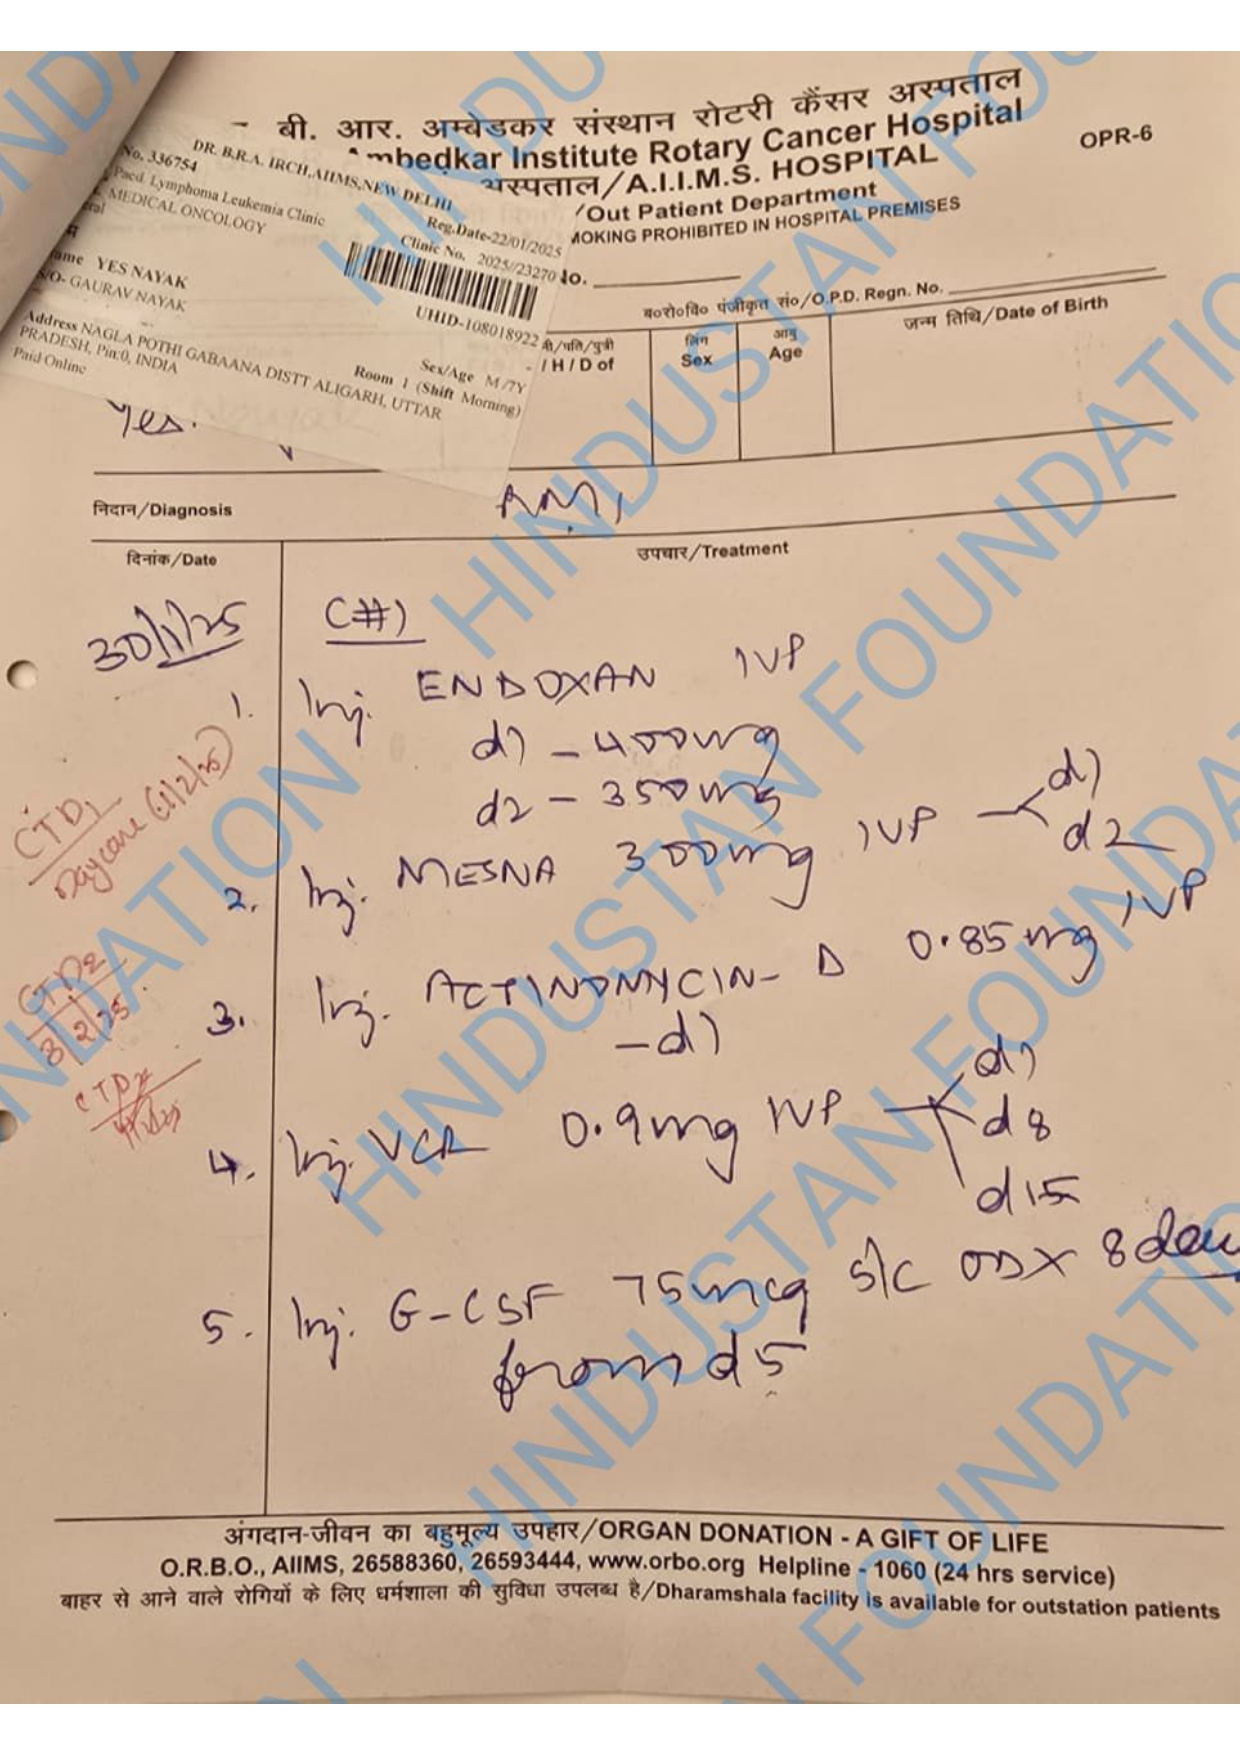 बी. आर. अम्बेडकर संस्थान रोटरी कैंसर अस्पताल
Ambedkar Institute Rotary Cancer Hospital
अस्पताल/A.I.I.M.S. HOSPITAL
OPR-6
/Out Patient Department
MOKING PROHIBITED IN HOSPITAL PREMISES
DR. B.R.A. IRCH,AIIMS,NEW DELHI
No. 336754
Paed. Lymphoma Leukemia Clinic
MEDICAL ONCOLOGY
Reg.Date-22/01/2025
Clinic No. 2025//23270
eral
ame YES NAYAK
S/O- GAURAV NAYAK
UHID-108018922
Sex/Age M /7Y
Room 1 (Shift Morning)
Address NAGLA POTHI GABAANA DISTT ALIGARH, UTTAR
PRADESH, Pin:0, INDIA
Paid Online
lo.
ब०रो०वि० पंजीकृत सं०/O.P.D. Regn. No.
बी/पति/पुत्री
/ H / D of
लिंग
Sex
आयु
Age
जन्म तिथि/Date of Birth
Yes.
निदान/Diagnosis
दिनांक/Date
उपचार/Treatment
30/1/25
C#1
1. Inj. ENDOXAN IVP
d1 - 400mg
d2 - 350mg
2. Inj. MESNA 300mg IVP d1
d2
3. Inj. ACTINOMYCIN-D 0.85mg IVP
- d1
4. Inj. VCR 0.9mg IVP d1
d8
d15
5. Inj. G-CSF 75mcg S/C OD X 8 day
from d5
CTD1
Daycare (1/2/25)
CTD2
3/2/25
अंगदान-जीवन का बहुमूल्य उपहार/ORGAN DONATION - A GIFT OF LIFE
O.R.B.O., AIIMS, 26588360, 26593444, www.orbo.org Helpline - 1060 (24 hrs service)
बाहर से आने वाले रोगियों के लिए धर्मशाला की सुविधा उपलब्ध है/Dharamshala facility is available for outstation patients
HINDUSTAN FOUNDATION